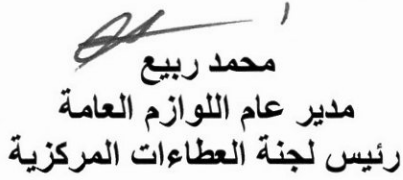 محمد ربيع
مدير عام اللوازم العامة
رئيس لجنة العطاءات المركزية